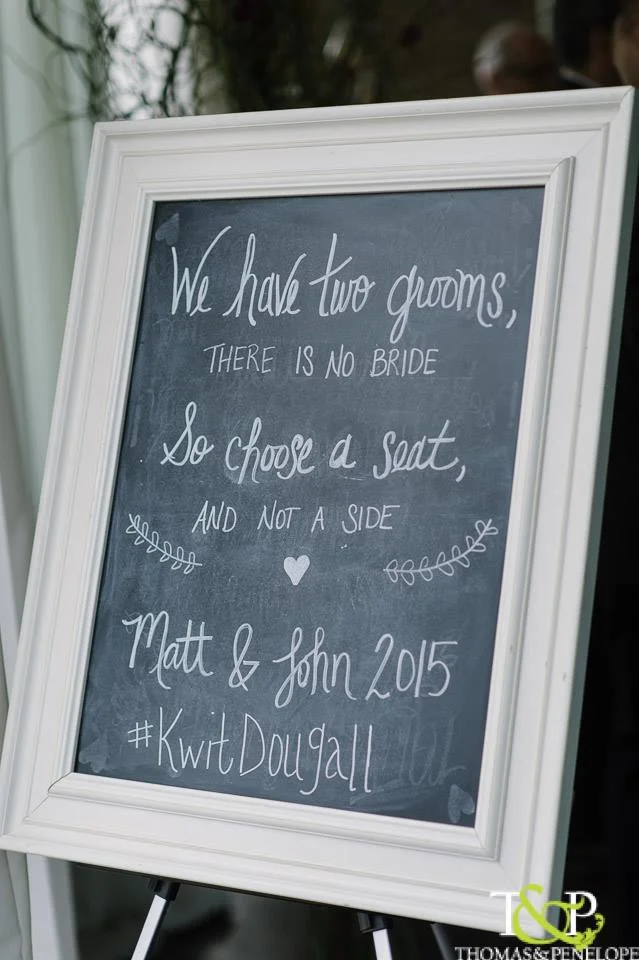 We have two grooms,
THERE IS NO BRIDE
So choose a seat,
AND NOT A SIDE
Matt & John 2015
#KwitDougall
T&P
THOMAS&PENELOPE